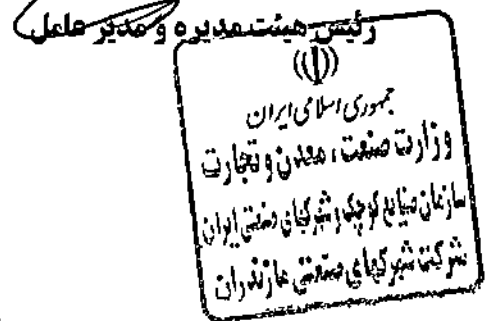 رئیس هیئت مدیره و مدیر عامل
جمهوری اسلامی ایران
وزارت صنعت، معدن و تجارت
سازمان صنایع کوچک و شهرکهای صنعتی ایران
شرکت شهرکهای صنعتی مازندران